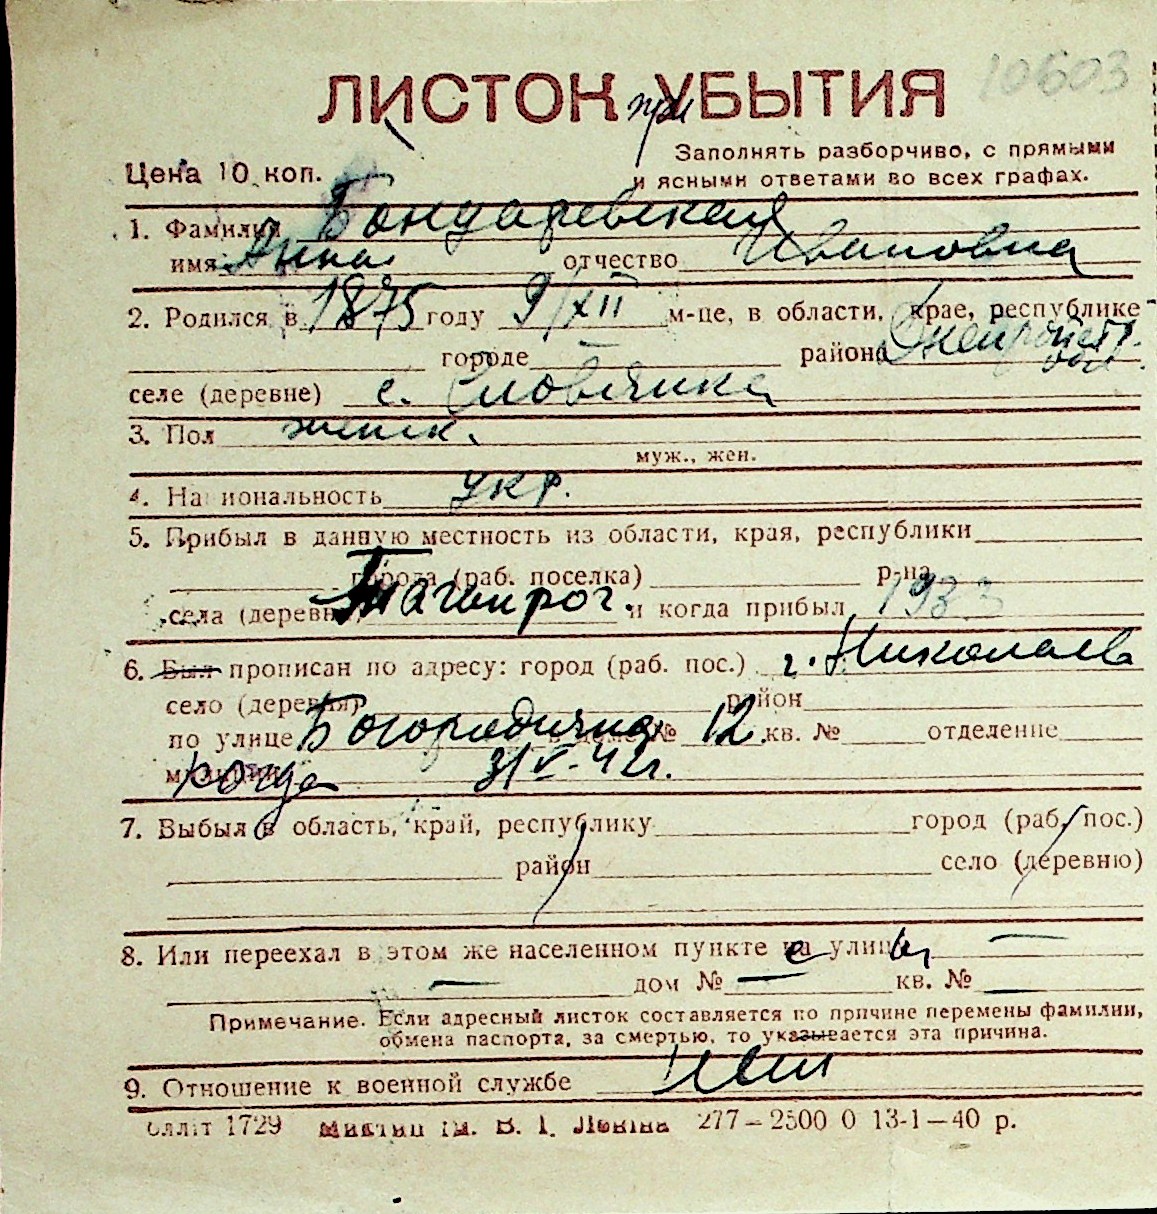 10603
ЛИСТОК при УБЫТИЯ
Заполнять разборчиво, с прямыми
Цена 10 коп. и ясными ответами во всех графах.
1. Фамилия Бондаревская
имя Анна отчество Ивановна
2. Родился в 1875 году 9/XII м-це, в области, крае, республике
городе района Днепропетр.
селе (деревне) с.
3. Пол женск.
муж., жен.
4. Национальность укр.
5. Прибыл в данную местность из области, края, республики
города (раб. поселка) р-на
села (деревни) Таганрог. и когда прибыл 1933
6. Был прописан по адресу: город (раб. пос.) г. Николаев
село (деревня) район
по улице Богородична дом № 12 кв. № отделение
милиции когда 3/V-42г.
7. Выбыл в область, край, республику город (раб. пос.)
район село (деревню)
8. Или переехал в этом же населенном пункте на с улицы
дом № — кв. №
Примечание. Если адресный листок составляется по причине перемены фамилии,
обмена паспорта, за смертью, то указывается эта причина.
9. Отношение к военной службе
1729 В. І. Леніна 277—2500 0 13-1—40 р.